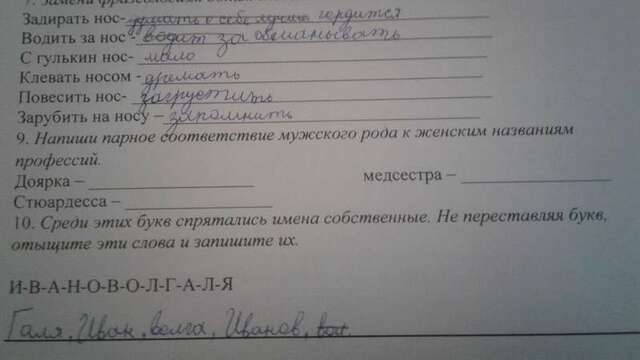 7. Замени фразеологизм
Задирать нос- гордится
Водить за нос - обманывать
С гулькин нос- мало
Клевать носом - дремать
Повесить нос- загрустить
Зарубить на носу – запомнить
9. Напиши парное соответствие мужского рода к женским названиям
профессий.
Доярка – медсестра –
Стюардесса –
10. Среди этих букв спрятались имена собственные. Не переставляя букв,
отыщите эти слова и запишите их.
И-В-А-Н-О-В-О-Л-Г-А-Л-Я
Галя, Иван, волга, Иванов,